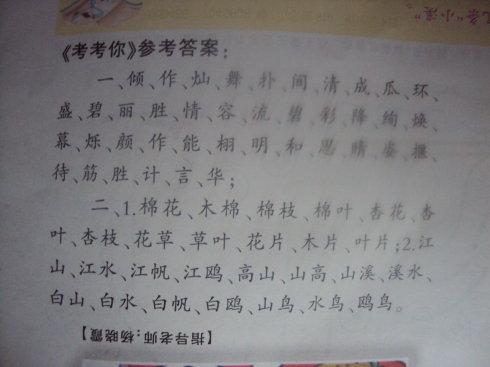 《考考你》参考答案:
一、倾、作、灿、舞、扑、间、清、成、瓜、环、
盛、碧、丽、胜、情、容、流、碧、彩、降、绚、焕、
幕、烁、颜、作、能、栩、明、和、思、睛、姿、摇、
待、筋、胜、计、言、华;
二、1.棉花、木棉、棉枝、棉叶、杏花、杏
叶、杏枝、花草、草叶、花片、木片、叶片;2.江
山、江水、江帆、江鸥、高山、山高、山溪、溪水、
白山、白水、白帆、白鸥、山鸟、水鸟、鸥鸟。
【指导老师:杨晓霞】
“小溪”。